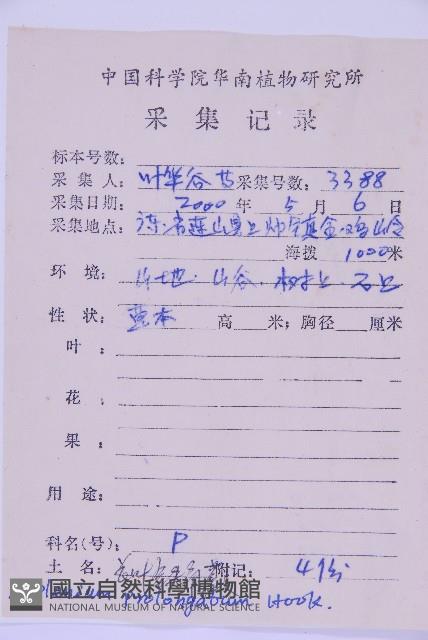 中国科学院华南植物研究所
采集记录
标本号数:
采集人: 叶华谷 采集号数: 3388
采集日期: 2000 年 5 月 6 日
采集地点: 连山县上帅镇金鸡岭
海拨 1000 米
环境: 山地 山谷. 树上. 石上
性状: 草本 高 米; 胸径 厘米
叶:
花:
果:
用途:
科名(号): P
土名: 附记: 4份
Hook.
國立自然科學博物館
NATIONAL MUSEUM OF NATURAL SCIENCE